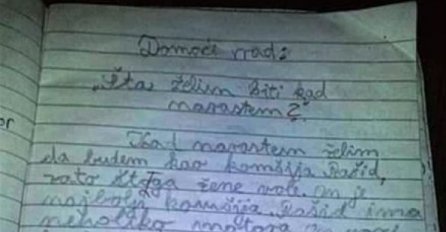 Domaći rad:
„Šta želim biti kad
narastem?"
Kad narastem želim
da budem kao komšija Rašid,
zato šta ga žene vole. On je
najbolji komšija. Rašid ima
nekoliko motora